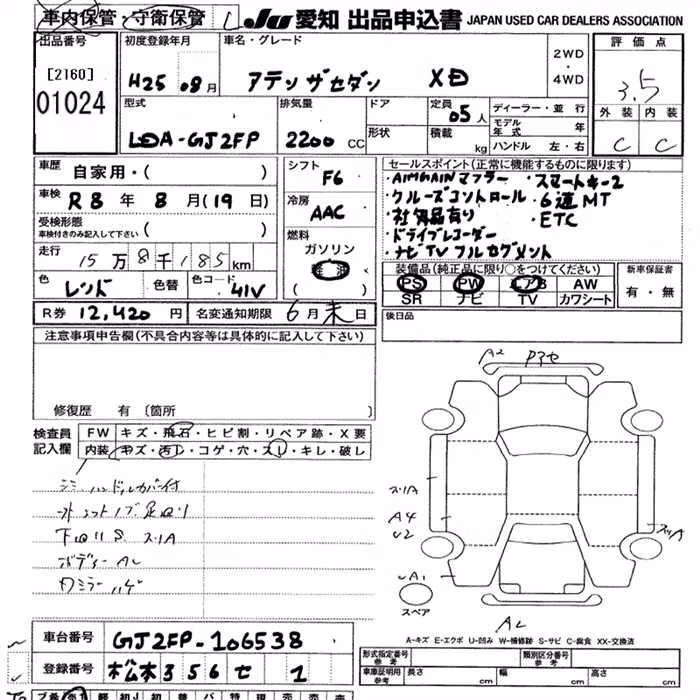 車内保管・守衛保管 JU 愛知 出品申込書 JAPAN USED CAR DEALERS ASSOCIATION
出品番号 初度登録年月 車名・グレード 評価点
[2160] H25 年 08月 アテンザセダン XD 2WD・4WD 3.5
01024 型式 排気量 ドア 定員 05人 ディーラー・並行 外装 内装
LDA-GJ2FP 2200CC 形状 積載 kg モデル年式 年 C C
ハンドル 左・右
車歴 自家用・( ) シフト F6 セールスポイント(正常に機能するものに限ります)
車検 R8年8月(19日) 冷房 AAC ・AIMGAINマフラー ・スマートキー2
受検形態 車検付きのみ記入して下さい ( ) 燃料 ・クルーズコントロール ・6速MT
走行 15万8千185km ガソリン ・社外品有り ・ETC
軽油 ・ドライブレコーダー
( ) ・ナビTVフルセグメント
色 レッド 色替 色コード 41V 装備品(純正品に限り○をつけてください) 新車保証書
PS PW エアB AW 有・無
SR ナビ TV カワシート
R券 12,420円 名変通知期限 6月末日 後日品
注意事項申告欄(不具合内容等は具体的に記入して下さい)
修復歴 有 〔箇所 〕
検査員記入欄 FW キズ・飛石・ヒビ割・リペア跡・X要
内装 キズ・汚レ・コゲ・穴・スレ・キレ・破し
ハンドルカバー付
下回りS
ボディーAL
A2
A4
U2
UA1
スペア
AL
A-キズ E-エクボ U-凹み W-補修跡 S-サビ C-腐食 XX-交換済
車台番号 GJ2FP-106538 形式指定番号 参考 類別区分番号 参考
登録番号 松本356せ1 車庫証明用 参考 長さ cm 幅 cm 高さ cm